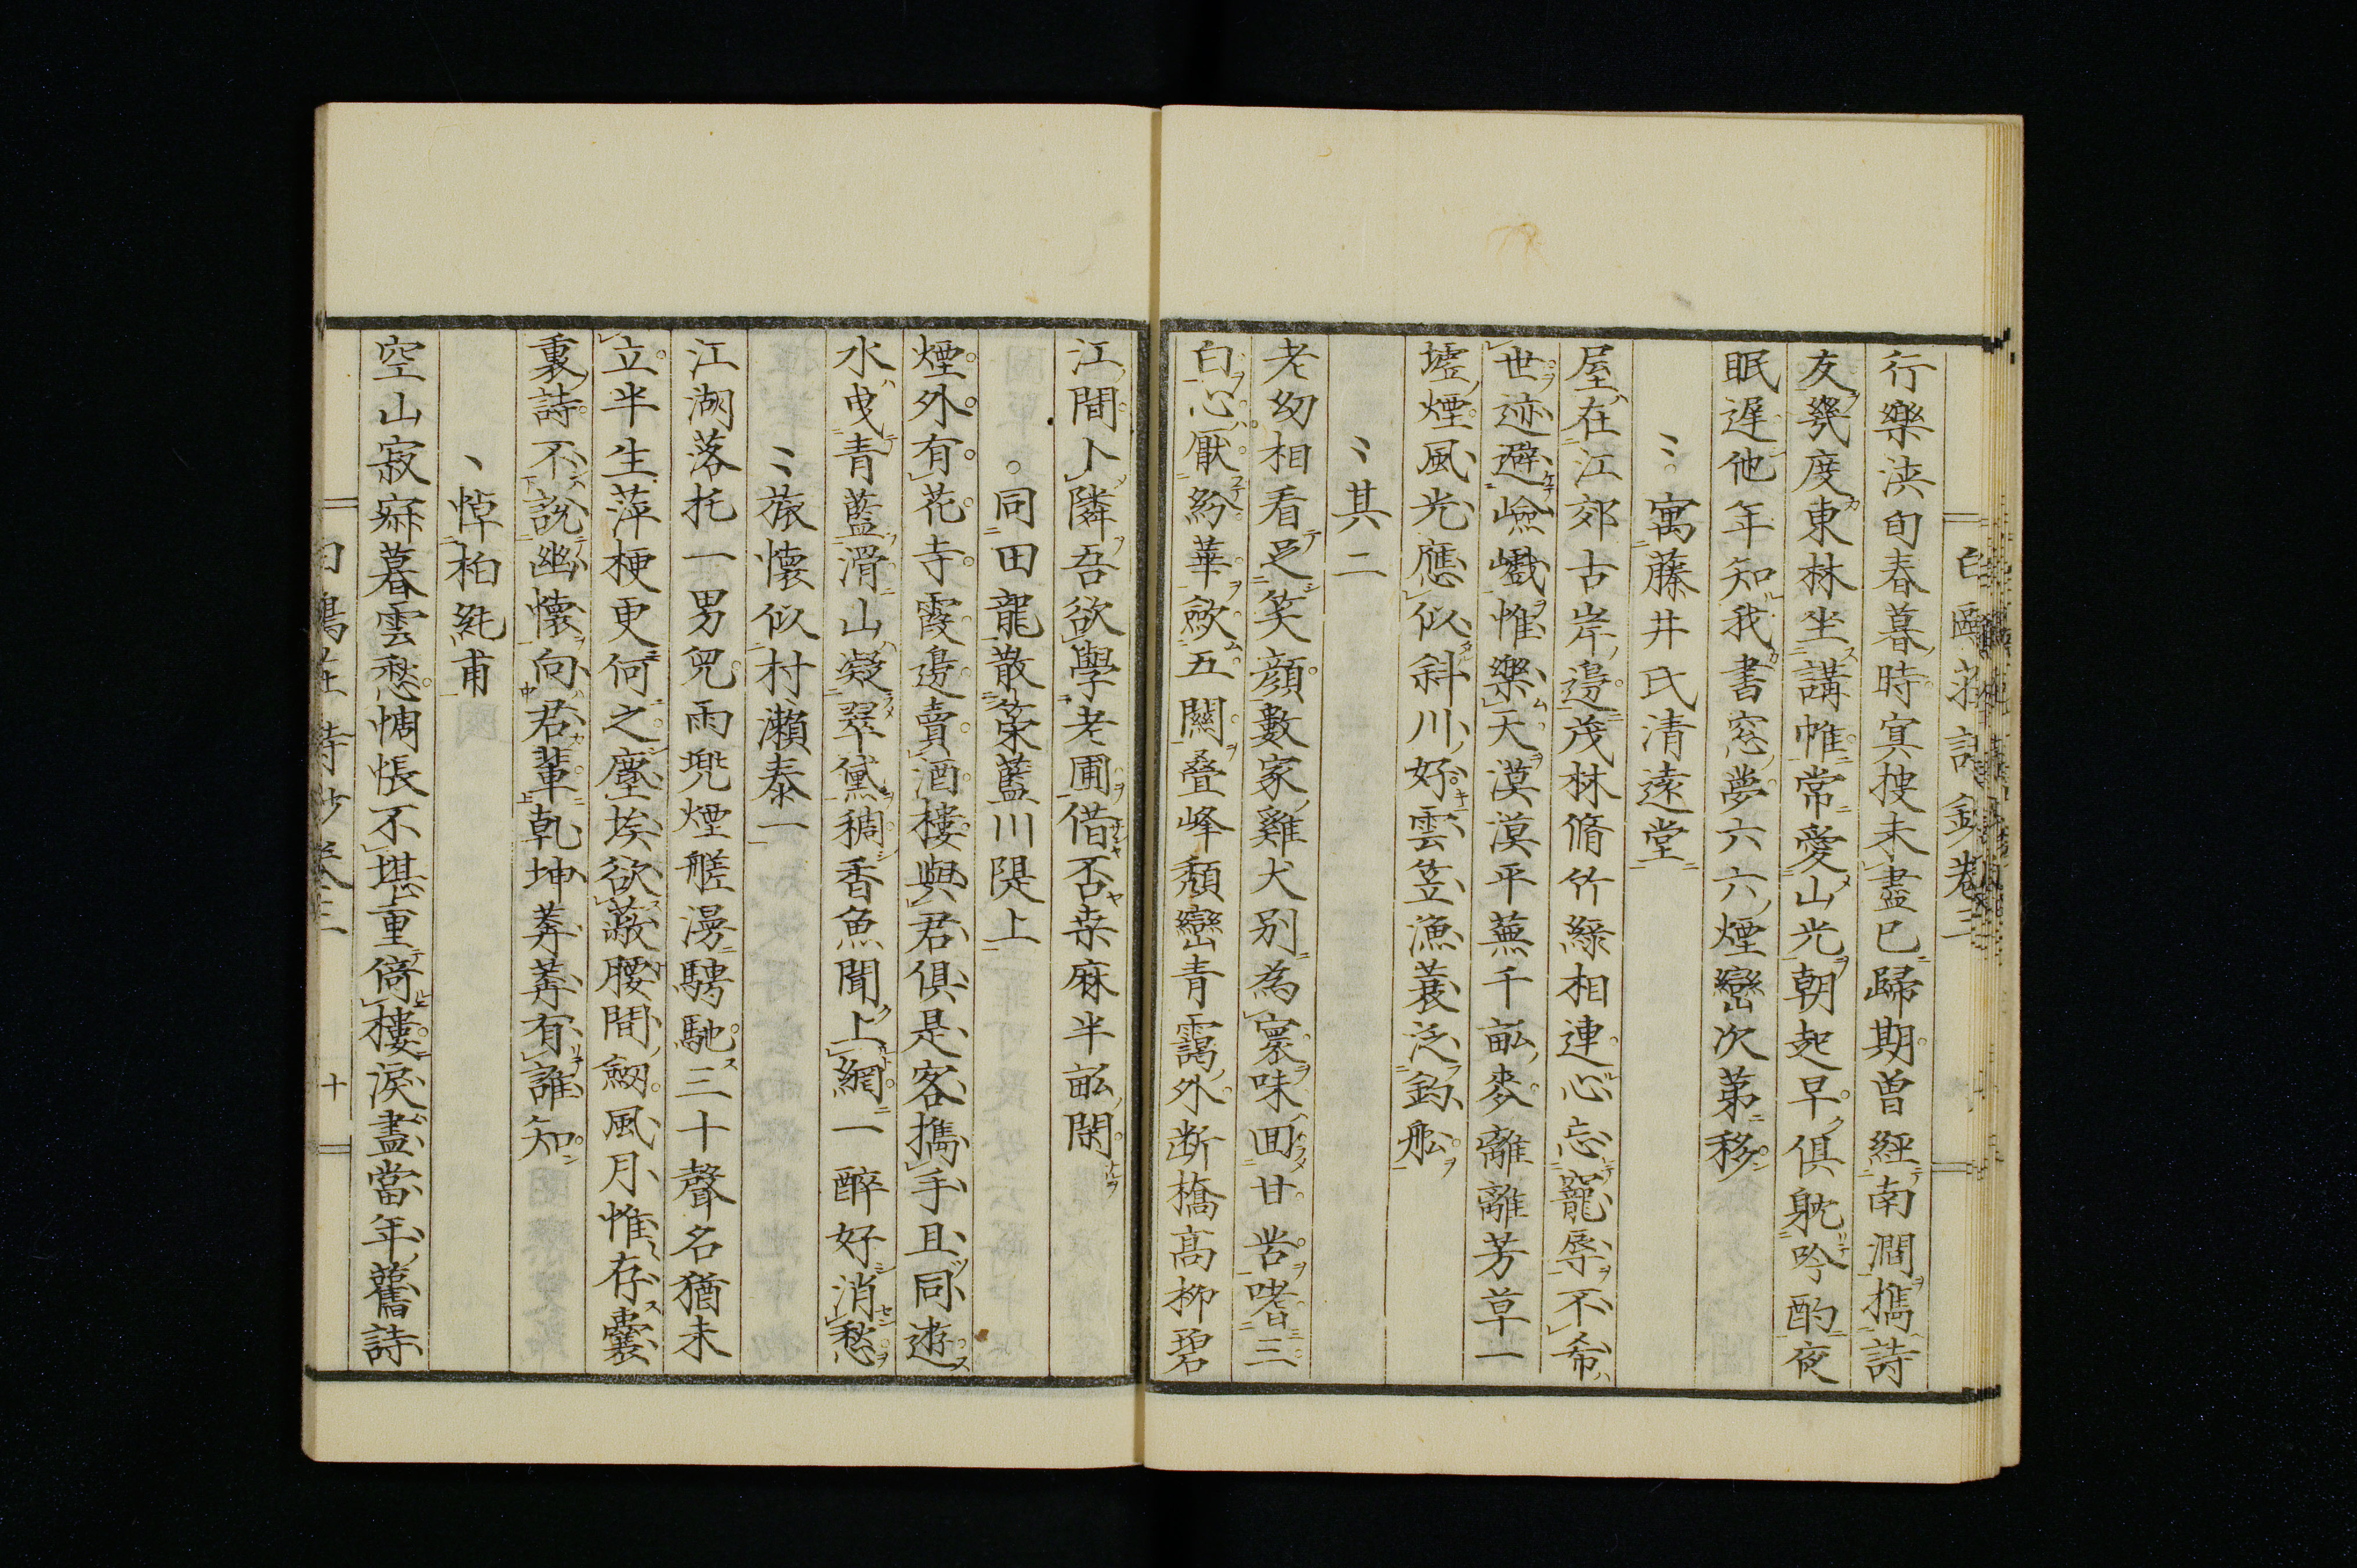 行樂浹旬春暮時冥搜未盡已歸期曾經南澗攜詩
友幾度東林坐講帷常愛山光朝起早俱躭吟酌夜
眠遲他年知我書窓夢六六煙巒次第移
寓藤井氏清遠堂
屋在江郊古岸邊茂林脩竹緑相連心忘寵辱不希
世迹避嶮巇惟樂天漠漠平蕪千畝麥離離芳草一
墟煙風光應似斜川好雲笠漁蓑泛釣舩
其二
老幼相看足笑顔數家雞犬別為寰味回甘苦嗜三
白心厭紛華歛五關叠峰頽巒青靄外断橋髙栁碧
江間卜隣吾欲學老圃借否桒麻半畝閑
同田龍散策藍川隄上
煙外有花寺霞邊賣酒樓與君俱是客攜手且同遊
水曳青藍滑山凝翠黛稠香魚聞上網一醉好消愁
旅懐似村瀬泰一
江湖落托一男兒雨兠煙艖漫騁馳三十聲名猶未
立半生萍梗更何之塵埃欲蔽腰間劔風月惟存囊
裏詩不說幽懐向君輩乾坤莽莽有誰知
悼柏毦甫
空山寂寐暮雲愁惆悵不堪重倚樓淚盡當年舊詩
白鷗莊詩鈔卷三 十